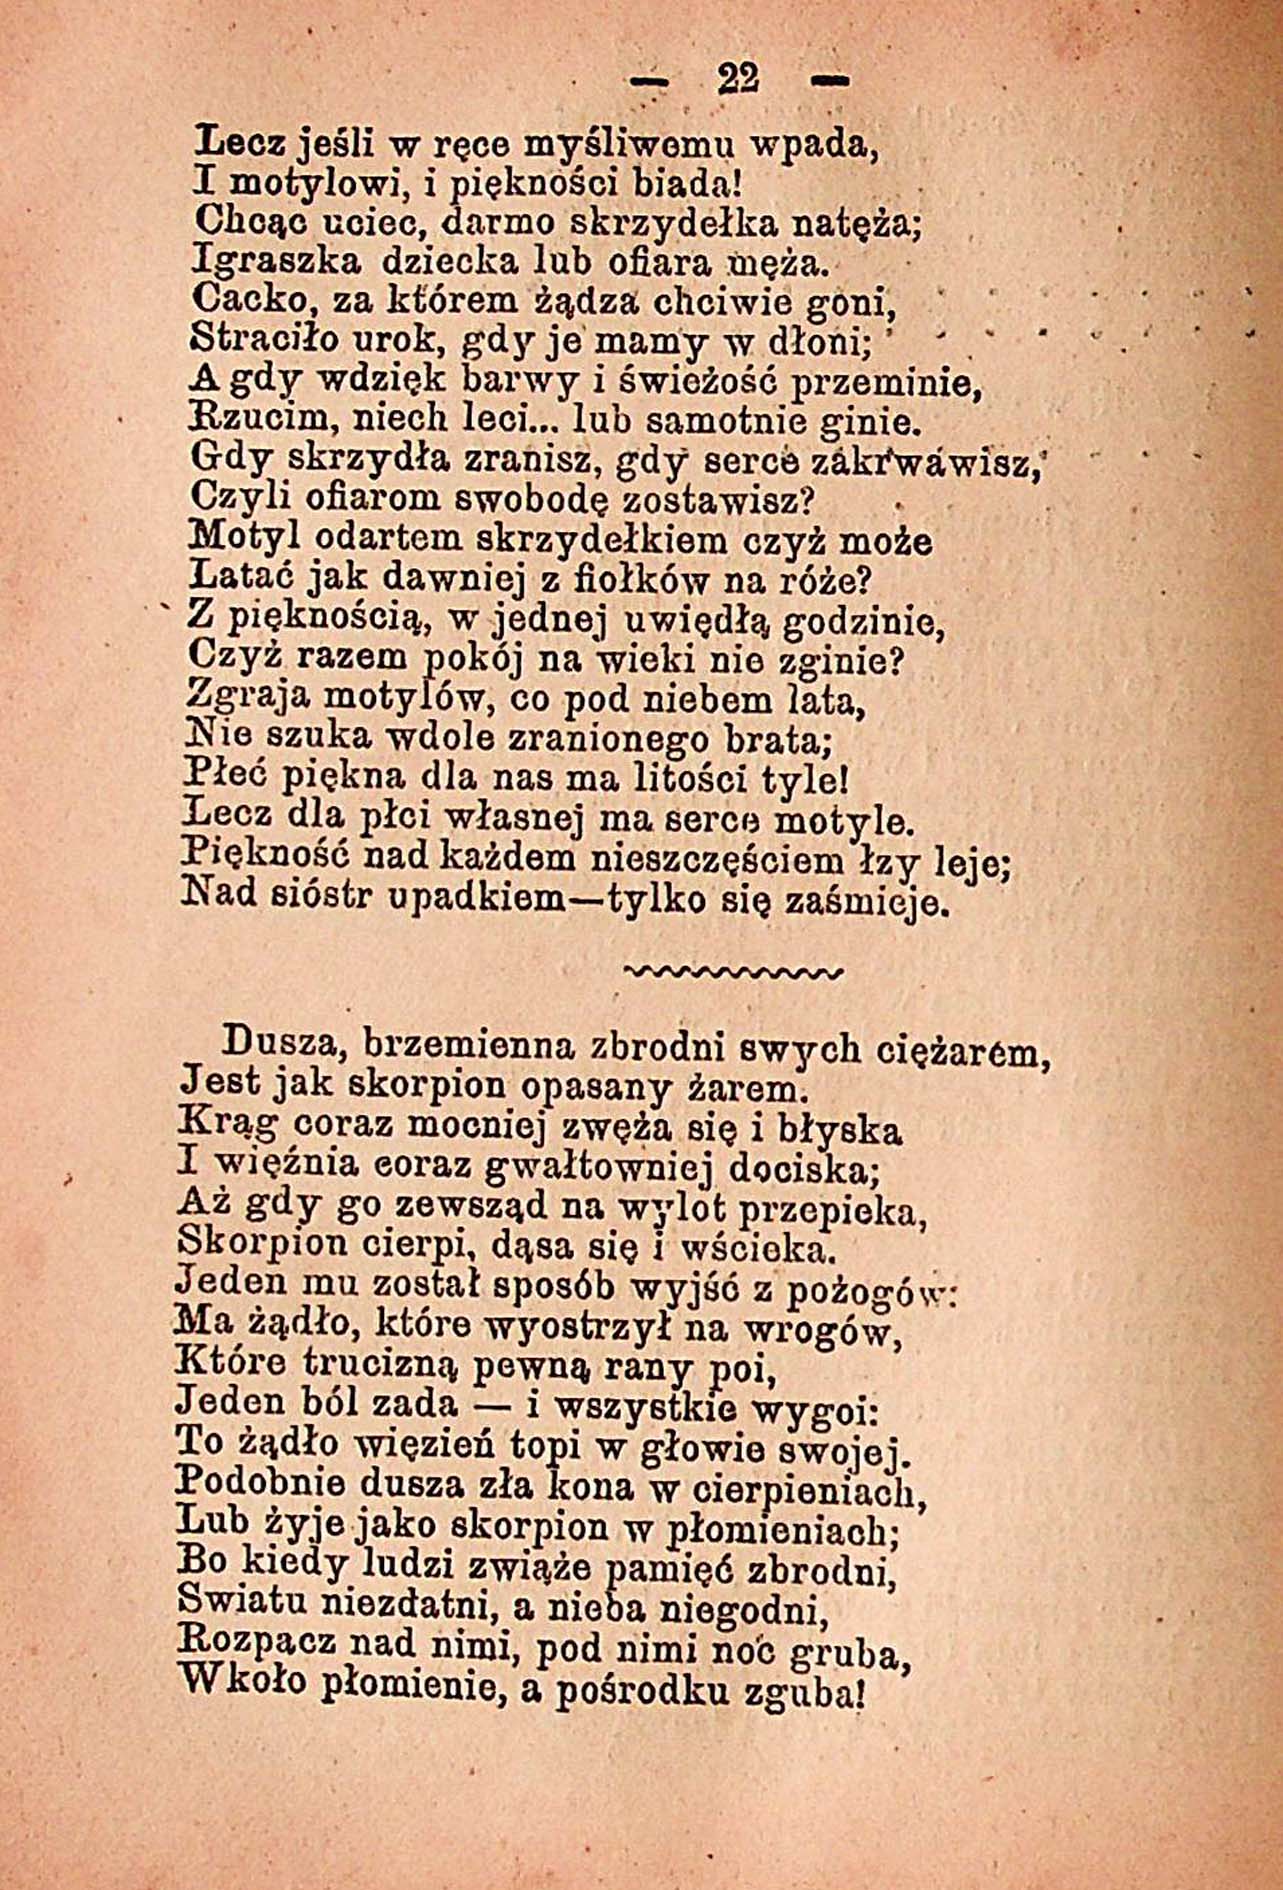 — 22 —
Lecz jeśli w ręce myśliwemu wpada,
I motylowi, i piękności biada!
Chcąc uciec, darmo skrzydełka natęża;
Igraszka dziecka lub ofiara męża.
Cacko, za którem żądza chciwie goni,
Straciło urok, gdy je mamy w dłoni;
A gdy wdzięk barwy i świeżość przeminie,
Rzucim, niech leci... lub samotnie ginie.
Gdy skrzydła zranisz, gdy serce zakrwawisz,
Czyli ofiarom swobodę zostawisz?
Motyl odartem skrzydełkiem czyż może
Latać jak dawniej z fiołków na róże?
Z pięknością, w jednej uwiędłą godzinie,
Czyż razem pokój na wieki nie zginie?
Zgraja motylów, co pod niebem lata,
Nie szuka wdole zranionego brata;
Płeć piękna dla nas ma litości tyle!
Lecz dla płci własnej ma serce motyle.
Piękność nad każdem nieszczęściem łzy leje;
Nad sióstr upadkiem—tylko się zaśmieje.
Dusza, brzemienna zbrodni swych ciężarem,
Jest jak skorpion opasany żarem.
Krąg coraz mocniej zwęża się i błyska
I więźnia coraz gwałtowniej dociska;
Aż gdy go zewsząd na wylot przepieka,
Skorpion cierpi, dąsa się i wścieka.
Jeden mu został sposób wyjść z pożogów:
Ma żądło, które wyostrzył na wrogów,
Które trucizną pewną rany poi,
Jeden ból zada — i wszystkie wygoi:
To żądło więzień topi w głowie swojej.
Podobnie dusza zła kona w cierpieniach,
Lub żyje jako skorpion w płomieniach;
Bo kiedy ludzi zwiąże pamięć zbrodni,
Swiatu niezdatni, a nieba niegodni,
Rozpacz nad nimi, pod nimi noc gruba,
Wkoło płomienie, a pośrodku zguba!